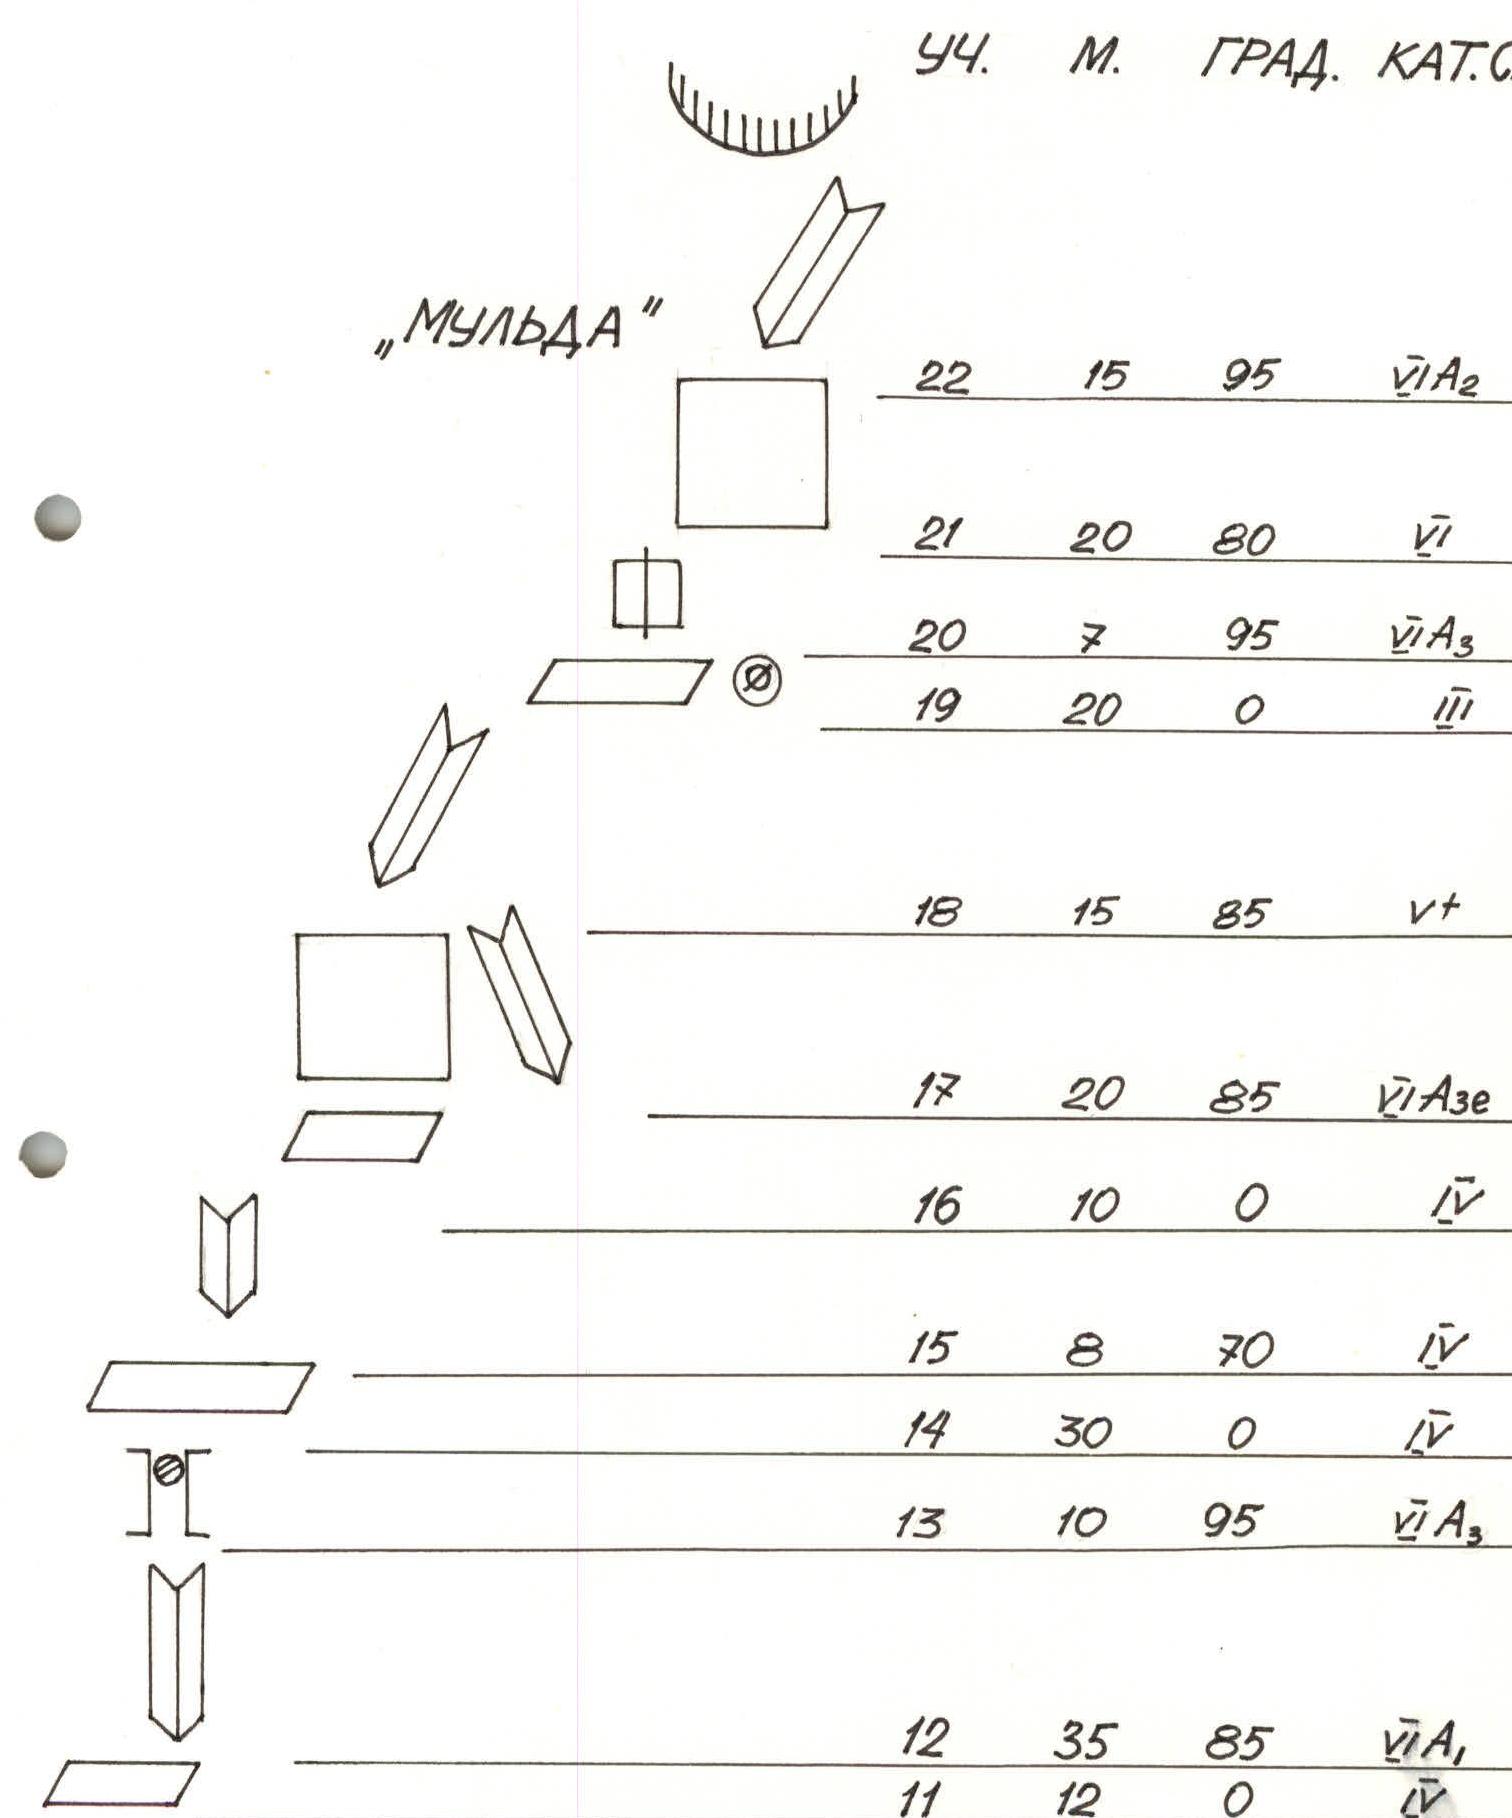 УЧ. М. ГРАД. КАТ.С
„МУЛЬДА"
22 15 95 VI A2
21 20 80 VI
20 7 95 VI A3
19 20 0 III
18 15 85 V+
17 20 85 VI A3e
16 10 0 IV
15 8 70 IV
14 30 0 IV
13 10 95 VI A3
12 35 85 VI A1
11 12 0 IV